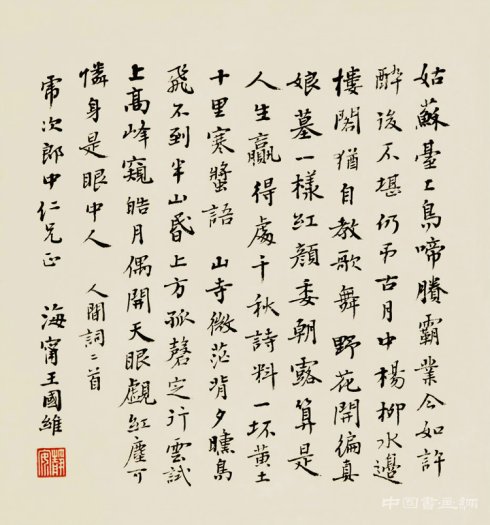 姑蘇臺上烏啼賸霸業今如許
醉後不堪仍弔古月中楊柳水邊
樓閣猶自教歌舞 野花開徧真
娘墓一樣紅顏委朝露算是
人生贏得處千秋詩料一抔黃土
十里寒螿語 山寺微茫背夕曛鳥
飛不到半山昏上方孤磬定行雲試
上高峰窺皓月偶開天眼覷紅塵可
憐身是眼中人 人間詞二首
次郎中仁兄正 海甯王國維
靜安
中国書画網